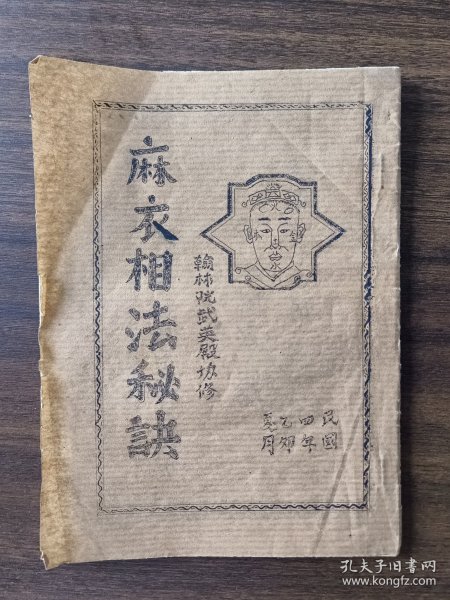 民國
四年
乙卯
月
翰林院武英殿协修
麻衣相法秘訣
孔夫子旧书网
www.kongfz.com